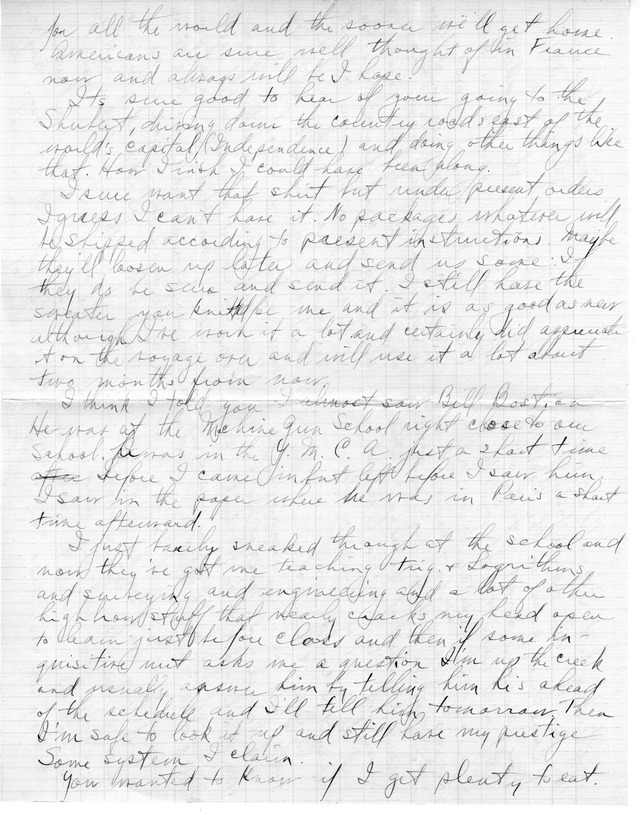 for all the world and the sooner we'll get home.
Americans are sure well thought of in France
now and always will be I hope.
It's sure good to hear of your going to the
Shubert, driving down the country roads east of the
world's capital (Independence) and doing other things like
that. How I wish I could have been along.
I sure want that shirt but under present orders
I guess I can't have it. No packages whatever will
be shipped according to present instructions. Maybe
they'll loosen up latter and send us some. If
they do be sure and send it. I still have the
sweater you knitted me and it is as good as new
although I've worn it a lot and certainly did appreciate
it on the voyage over and will use it a lot about
two months from now.
I think I told you I almost saw Bill Bostian
He was at the Machine Gun School right close to our
School. He was in the Y.M.C.A. just a short time
before I came in but left before I saw him.
I saw in the paper where he was in Paris a short
time afterward.
I just barely sneaked through at the school and
now they've got me teaching trig. & Logrithms
and surveying and engineering and a lot of other
high brow stuff that nearly cracks my head open
to learn just before class and then if some in-
quisitive nut asks me a question I'm up the creek
and usually answer him by telling him he's ahead
of the schedule and I'll tell him tomorrow. Then
I'm safe to look it up and still have my prestige
Some system I claim.
You wanted to know if I get plenty to eat.